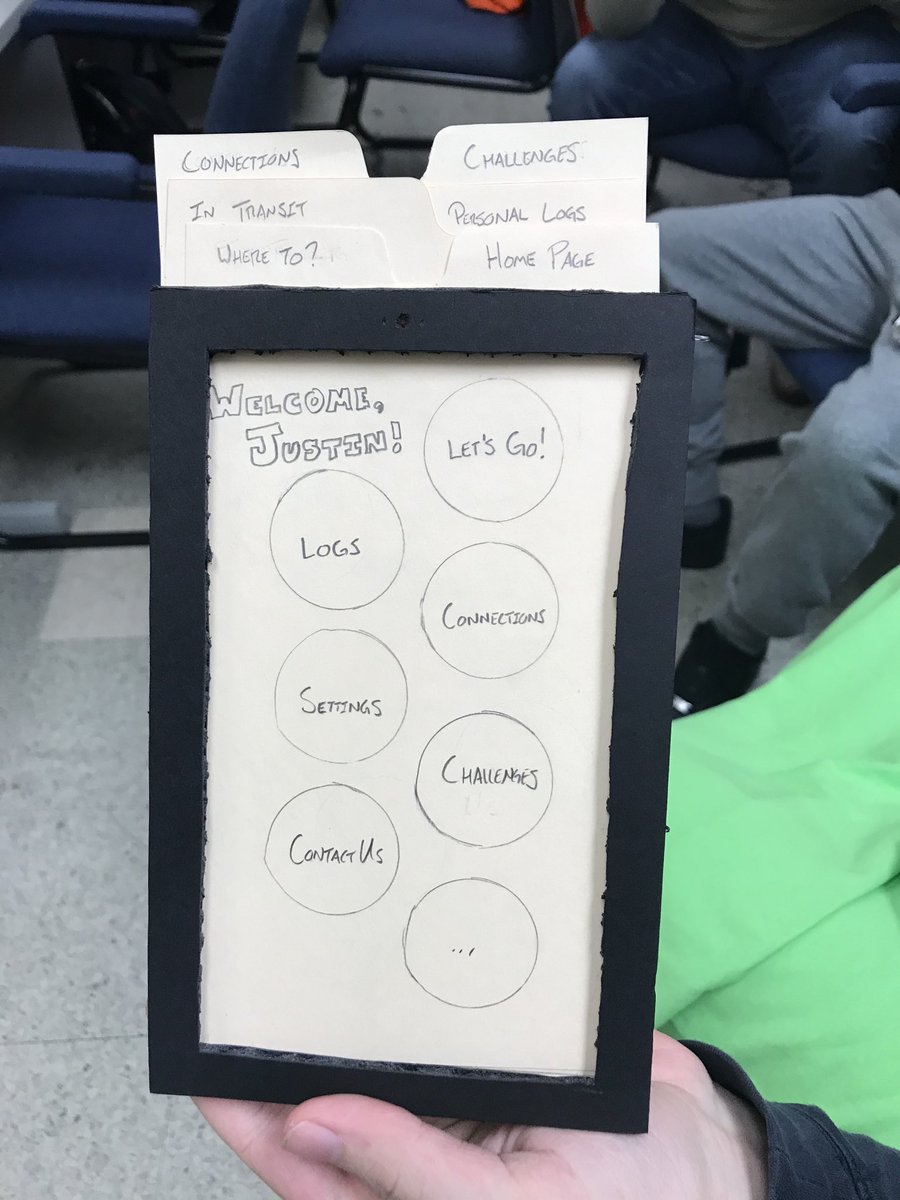 CONNECTIONS
CHALLENGES
IN TRANSIT
PERSONAL LOGS
WHERE TO?
HOME PAGE
WELCOME,
JUSTIN!
LET'S GO!
LOGS
CONNECTIONS
SETTINGS
CHALLENGES
CONTACT US
...